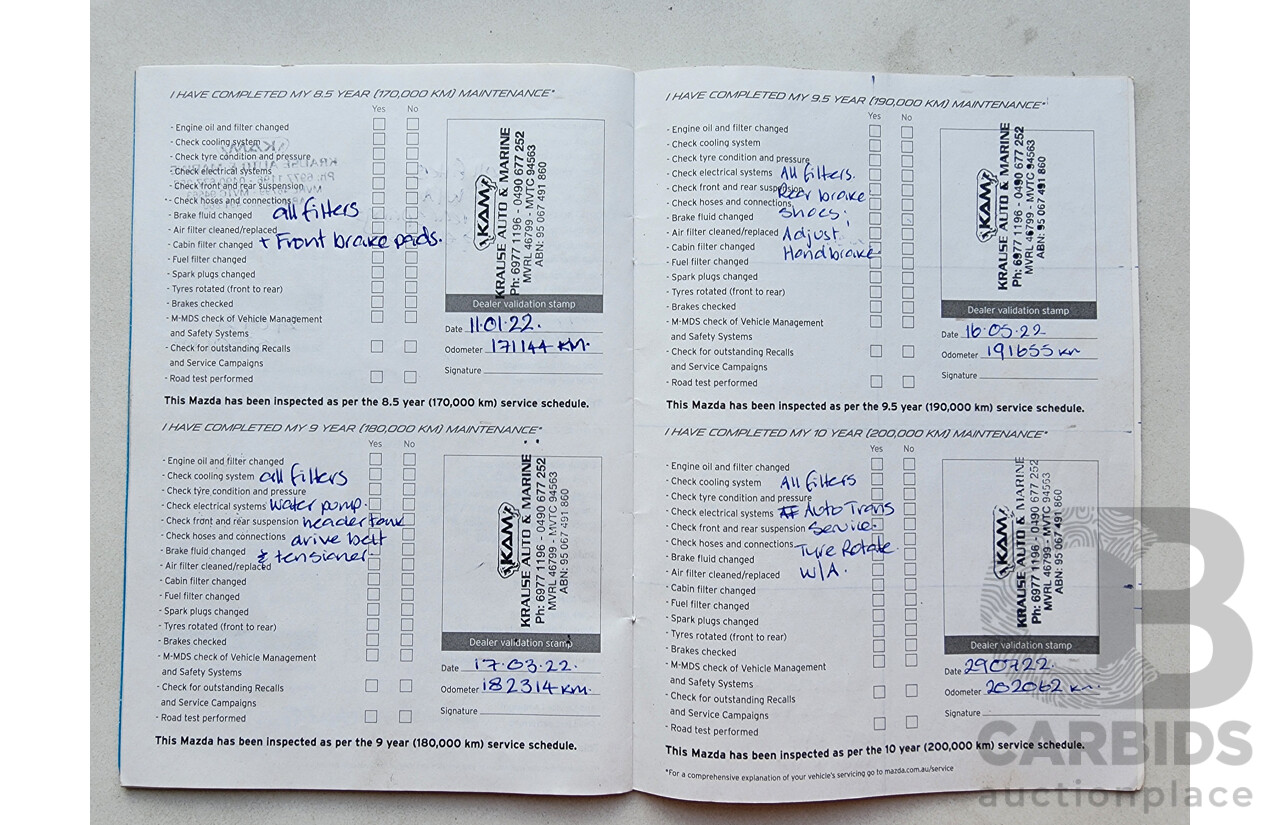 I HAVE COMPLETED MY 8.5 YEAR (170,000 KM) MAINTENANCE*
Yes No
- Engine oil and filter changed
- Check cooling system
- Check tyre condition and pressure
- Check electrical systems
- Check front and rear suspension
- Check hoses and connections
- Brake fluid changed
all filters
- Air filter cleaned/replaced
- Cabin filter changed
+ Front brake pads.
- Fuel filter changed
- Spark plugs changed
- Tyres rotated (front to rear)
- Brakes checked
- M-MDS check of Vehicle Management
and Safety Systems
- Check for outstanding Recalls
and Service Campaigns
- Road test performed
KAM
KRAUSE AUTO & MARINE
Ph: 6977 1196 - 0490 677 252
MVRL 46799 - MVTC 94563
ABN: 95 067 491 860
Dealer validation stamp
Date 11.01.22.
Odometer 171144 KM.
Signature
This Mazda has been inspected as per the 8.5 year (170,000 km) service schedule.
I HAVE COMPLETED MY 9 YEAR (180,000 KM) MAINTENANCE*
Yes No
- Engine oil and filter changed
- Check cooling system
all filters
- Check tyre condition and pressure
- Check electrical systems
water pump.
- Check front and rear suspension
header tank
- Check hoses and connections
drive belt
- Brake fluid changed
& tensioner
- Air filter cleaned/replaced
- Cabin filter changed
- Fuel filter changed
- Spark plugs changed
- Tyres rotated (front to rear)
- Brakes checked
- M-MDS check of Vehicle Management
and Safety Systems
- Check for outstanding Recalls
and Service Campaigns
- Road test performed
KAM
KRAUSE AUTO & MARINE
Ph: 6977 1196 - 0490 677 252
MVRL 46799 - MVTC 94563
ABN: 95 067 491 860
Dealer validation stamp
Date 17.03.22.
Odometer 182314 KM.
Signature
This Mazda has been inspected as per the 9 year (180,000 km) service schedule.
I HAVE COMPLETED MY 9.5 YEAR (190,000 KM) MAINTENANCE*
Yes No
- Engine oil and filter changed
- Check cooling system
- Check tyre condition and pressure
- Check electrical systems
All filters.
- Check front and rear suspension
Rear brake
- Check hoses and connections
shoes.
- Brake fluid changed
- Air filter cleaned/replaced
Adjust
- Cabin filter changed
Handbrake
- Fuel filter changed
- Spark plugs changed
- Tyres rotated (front to rear)
- Brakes checked
- M-MDS check of Vehicle Management
and Safety Systems
- Check for outstanding Recalls
and Service Campaigns
- Road test performed
KAM
KRAUSE AUTO & MARINE
Ph: 6977 1196 - 0490 677 252
MVRL 46799 - MVTC 94563
ABN: 95 067 491 860
Dealer validation stamp
Date 16.05.22
Odometer 191655 km
Signature
This Mazda has been inspected as per the 9.5 year (190,000 km) service schedule.
I HAVE COMPLETED MY 10 YEAR (200,000 KM) MAINTENANCE*
Yes No
- Engine oil and filter changed
- Check cooling system
All filters
- Check tyre condition and pressure
- Check electrical systems
Auto Trans
- Check front and rear suspension
Service.
- Check hoses and connections
Tyre Rotate.
- Brake fluid changed
- Air filter cleaned/replaced
W/A.
- Cabin filter changed
- Fuel filter changed
- Spark plugs changed
- Tyres rotated (front to rear)
- Brakes checked
- M-MDS check of Vehicle Management
and Safety Systems
- Check for outstanding Recalls
and Service Campaigns
- Road test performed
KAM
KRAUSE AUTO & MARINE
Ph: 6977 1196 - 0490 677 252
MVRL 46799 - MVTC 94563
ABN: 95 067 491 860
Dealer validation stamp
Date 290722.
Odometer 202062 km.
Signature
This Mazda has been inspected as per the 10 year (200,000 km) service schedule.
*For a comprehensive explanation of your vehicle's servicing go to mazda.com.au/service
B
CARBIDS
auctionplace